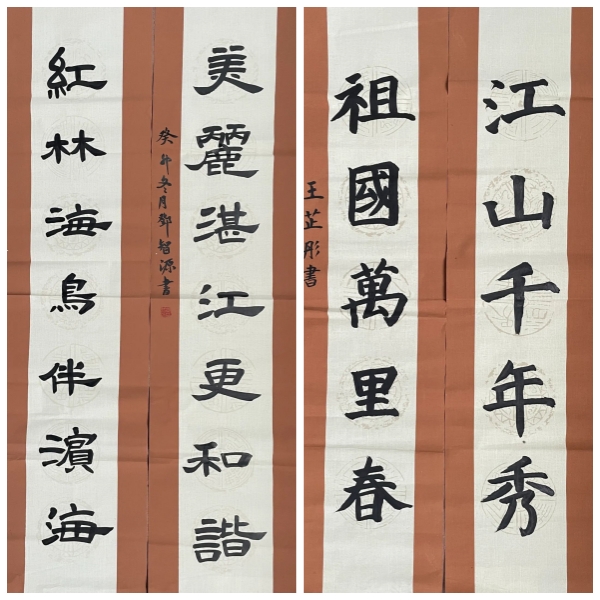 美麗湛江更和諧
紅林海鳥伴濱海
癸卯冬月鄧智源書
江山千年秀
祖國萬里春
王芷彤書